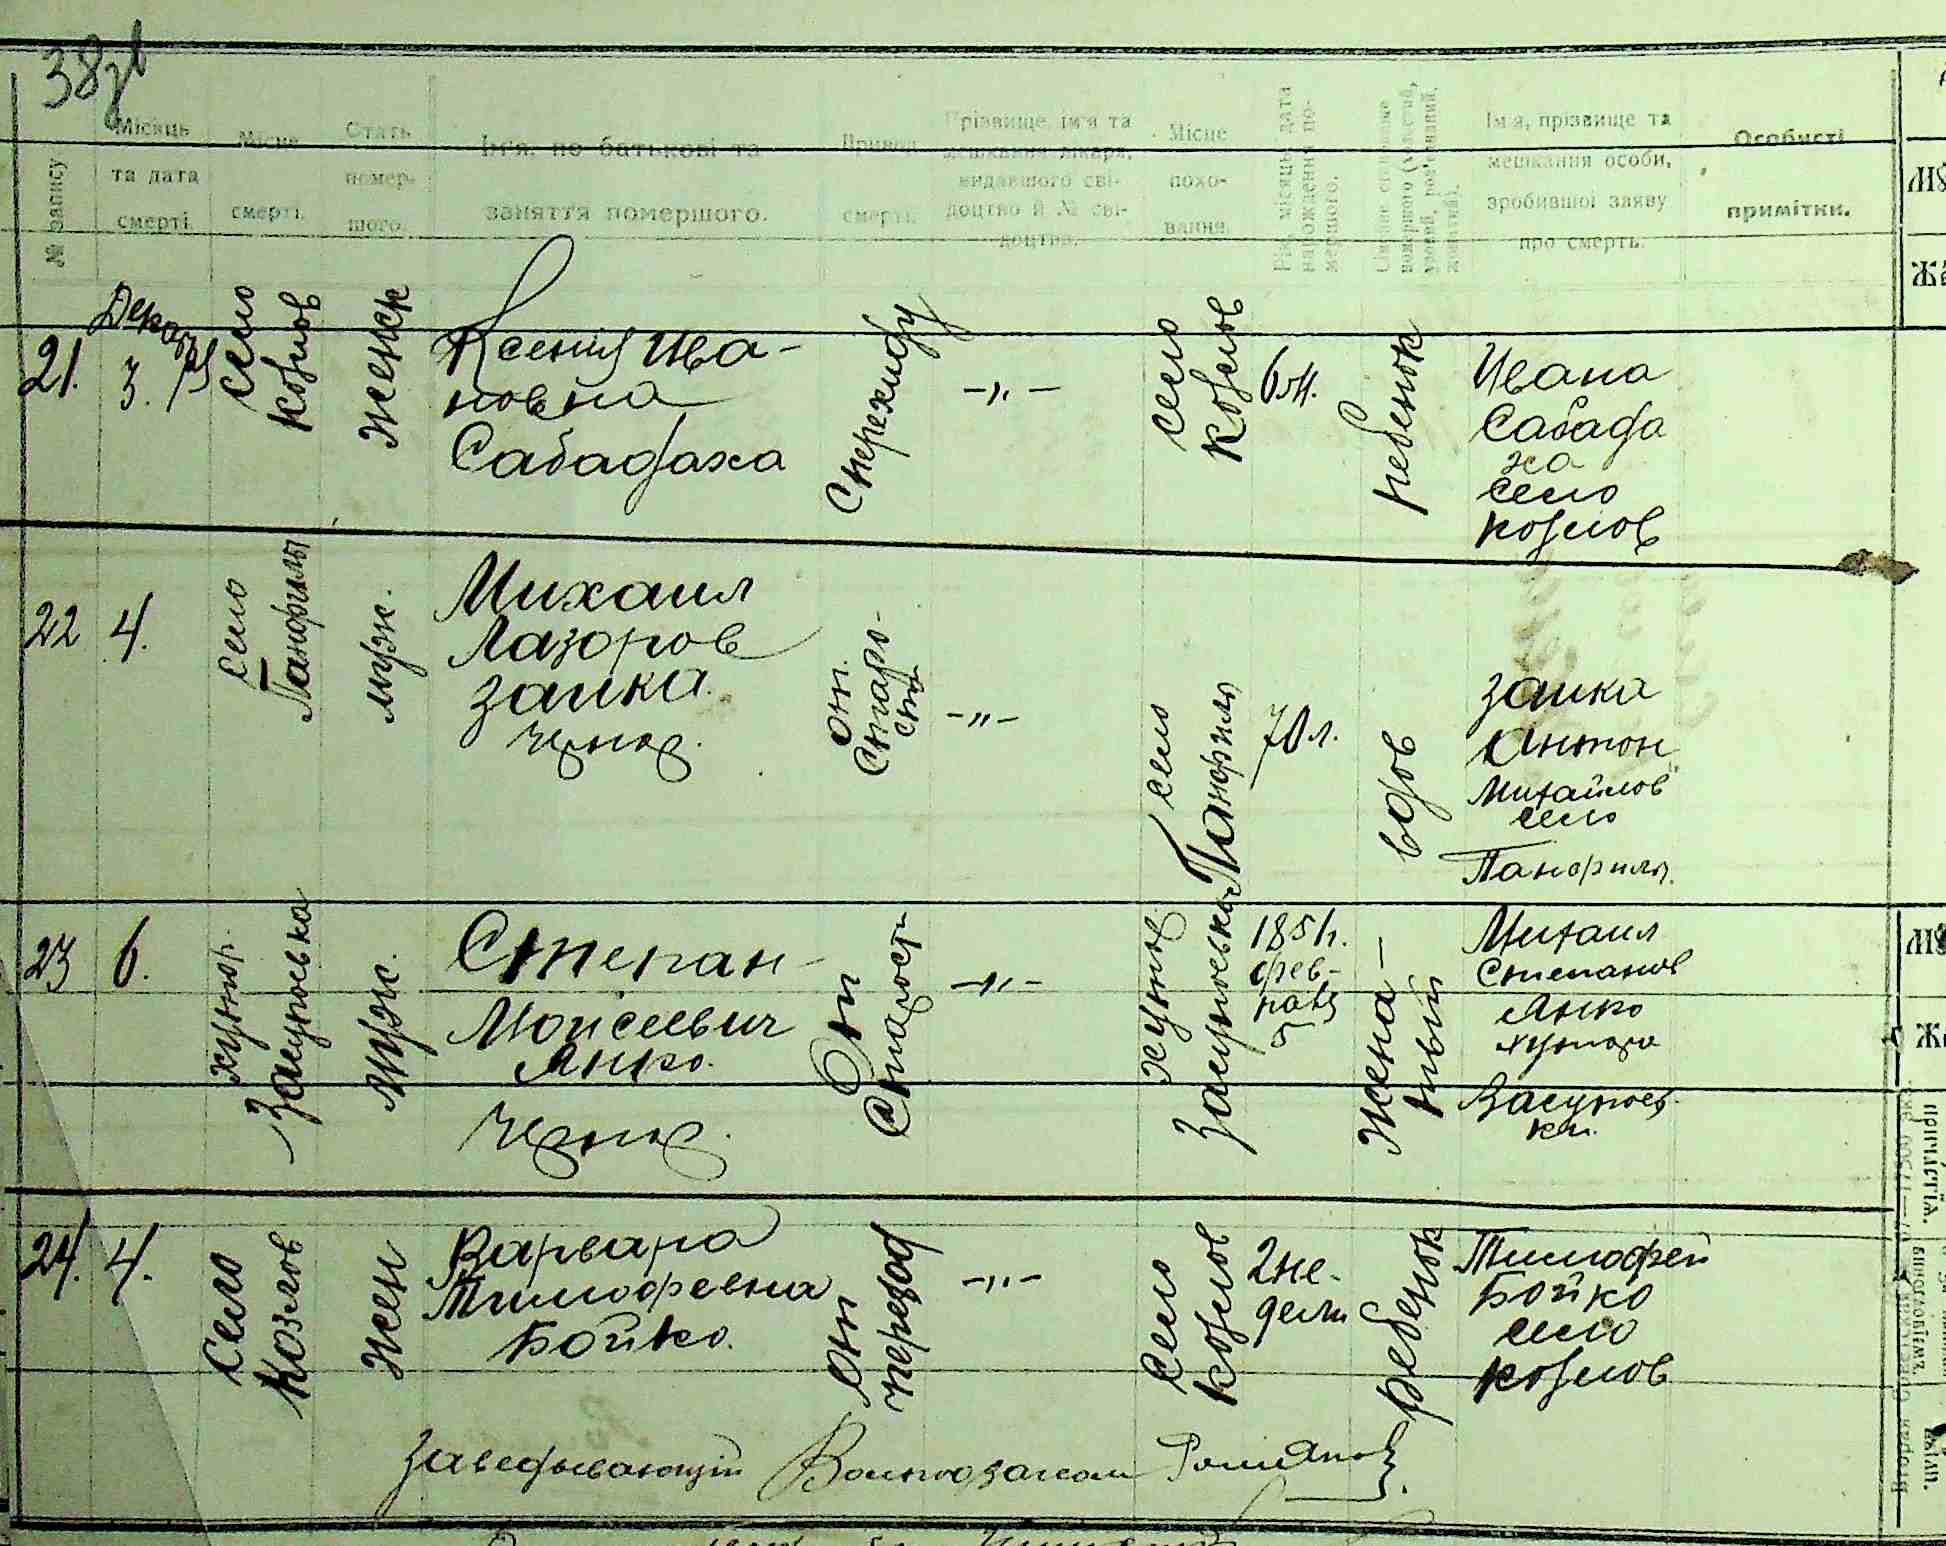 38зв
№ запису
Місяць
та дата
смерті.
Місце
смерті.
Стать
помер-
шого.
Ім'я, по батькові та
заняття помершого.
Привод
смерті.
Прізвище, ім'я та
мешкання лікаря,
видавшого сві-
доцтво й № сві-
доцтва.
Місце
похо-
вання.
Рік, місяць, дата
народження по-
мерлого.
Ім'я, прізвище та
мешкання особи,
зробившої заяву
про смерть.
Особисті
примітки.
21.
Декабря
3.
село
Козлов
женск
Ксения Ива-
новна
Сабадаха
-„-
село
Козлов
6 м.
ребенок
Ивана
Сабада
ха
село
Козлов
22
4.
село
Панфилы
муж.
Михаил
Лазоров
Заика
чернор.
от
старо-
сти
-„-
село
Панфилы
70 л.
вдов
Заика
Антон
Михайлов
село
Панфилы.
23
6.
хутор.
Засуповка
муж.
Степан
Моисеевич
Янко.
чернор.
От
старост
-„-
хутор
Засуповка
1851 г.
фев-
раля
5
жена-
тый
Михаил
Степанов
Янко
хутора
Засупов-
ки.
24.
4.
село
Козлов
жен
Варвара
Тимофевна
Бойко.
От
-„-
село
Козлов
2 не-
дели
ребенок
Тимофей
Бойко
село
Козлов
Заведывающий Волподзагсом